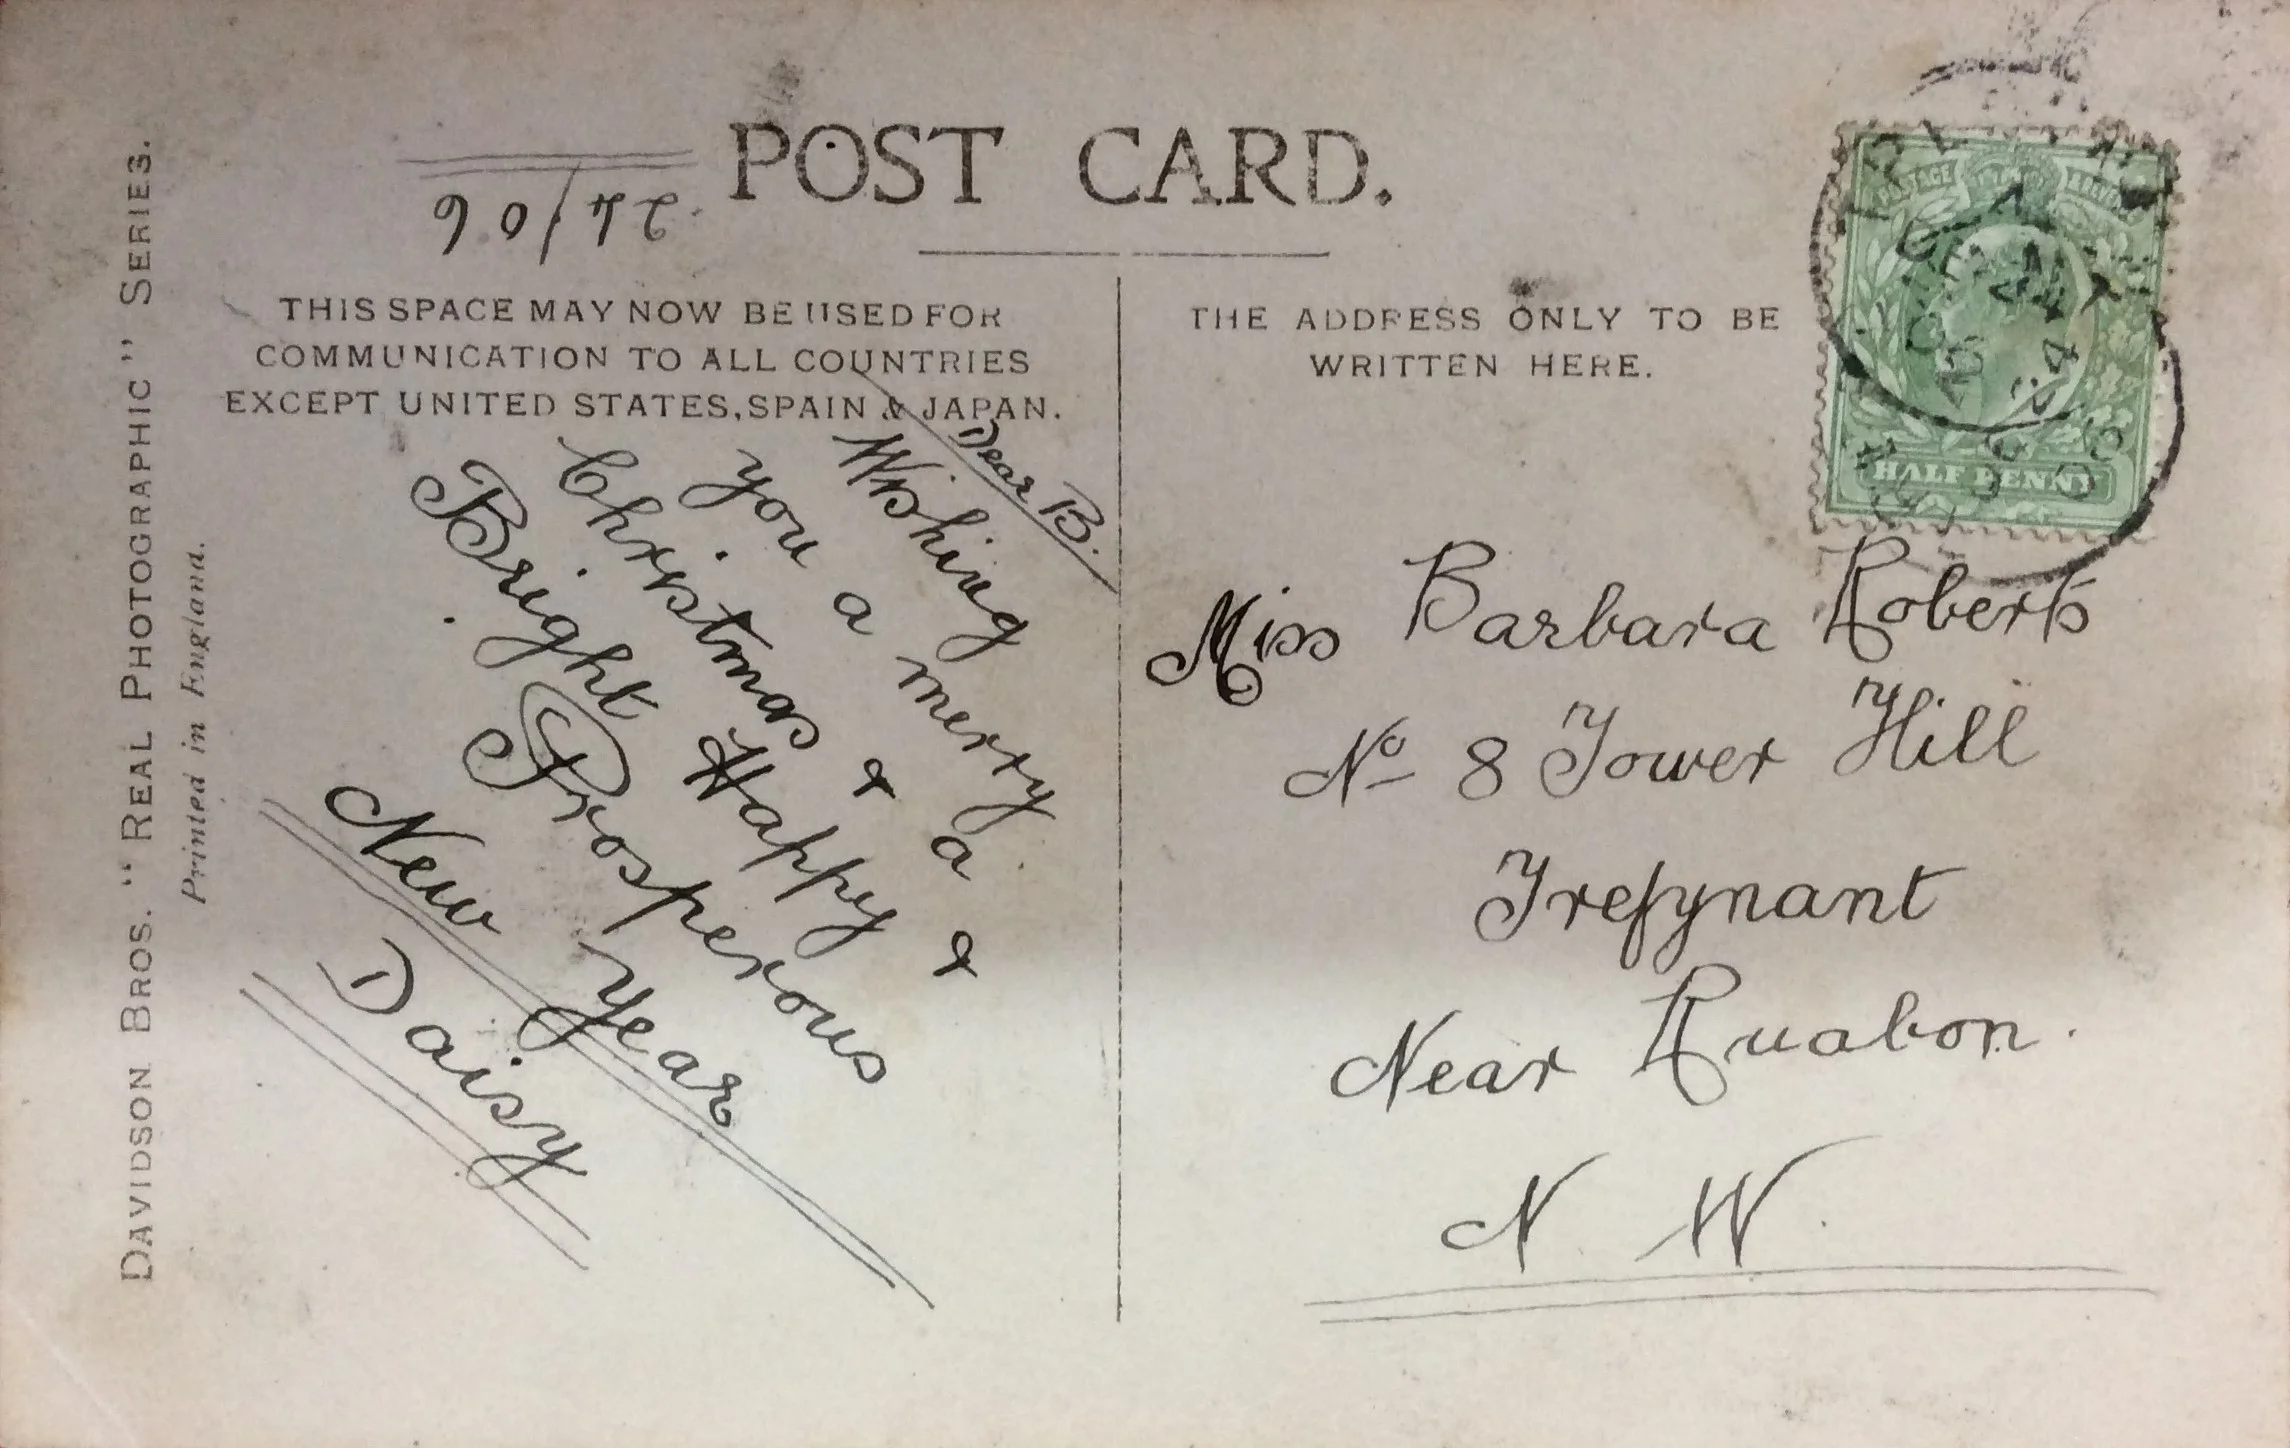 POST CARD.
THIS SPACE MAY NOW BE USED FOR
COMMUNICATION TO ALL COUNTRIES
EXCEPT UNITED STATES, SPAIN & JAPAN.
THE ADDRESS ONLY TO BE
WRITTEN HERE.
DAVIDSON BROS. "REAL PHOTOGRAPHIC" SERIES.
Printed in England.
Dear B.
Wishing
you a merry
Christmas & a
Bright Happy &
Prosperous
New Year
Daisy
Miss Barbara Roberts
No 8 Tower Hill
Trefynant
Near Ruabon.
N W.
POSTAGE
HALF PENNY